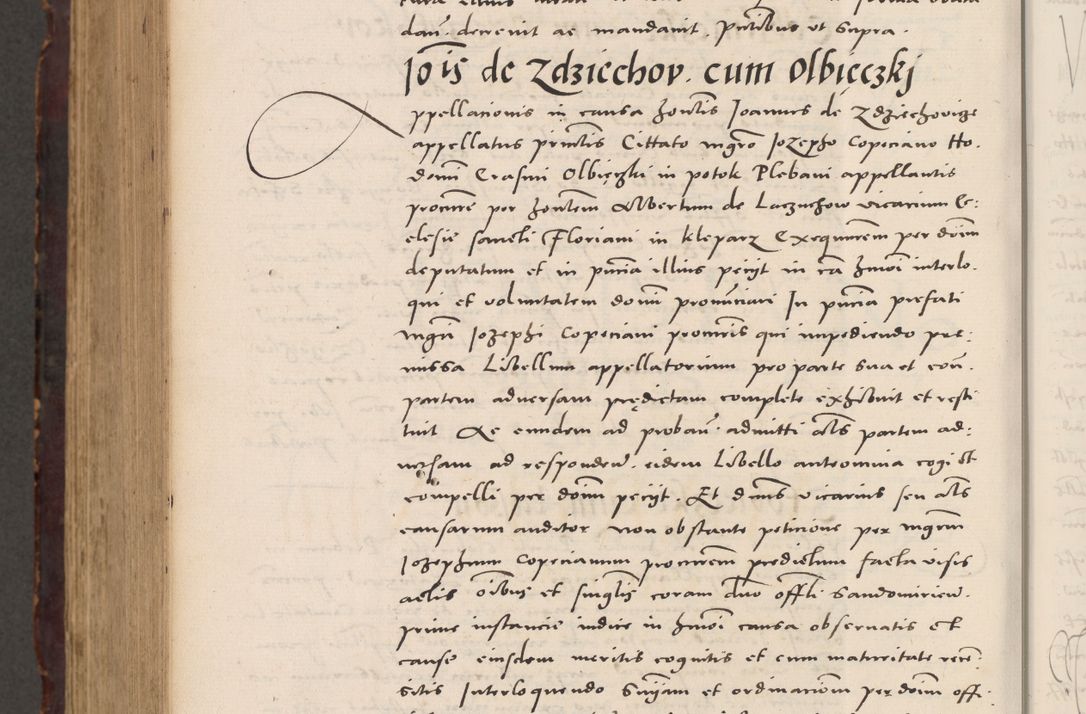 dan̄. decrevit ac mandavit. Pn̄tibus ut supra.
Jois de Zdziechov. cum Olbięczkj
ppellacionis in causa honlis Joannis de Zdziechovicze
appellatus prnctis Cittato mgro Jozepho Copeciano Ho.
domi Erasmi Olbięczki in potok Plebani appellantis
procure per honlem Albertum de Laczuchow vicarium Ec:
clesie sancti Floriani in kleparz Exequutem per dnm
deputatum et in pn̄cia illius peciit in ca hmoi interlo.
qui et voluntatem domi pronunciari In pn̄cia prefati
mgri Jozephi Copeciani procuris qui impediendo pre:
missa Libellum appellatorium pro parte sua et con̄.
partem adversam prędictam complete exhibuit et resti
tuit Ac eundem ad proband. admitti als partem ad:
versam ad respondend. eidem Libello anteomnia cogi et
compelli per dnm peciit. Et dnus vicarius seu als
causarum auditor non obstante peticione per mgrm
Jozephum Copecianum procurem predictum facta visis
actis oibus et singlis coram dno offli Sandomirien.
prime instancie iudice in hmoi causa observatis et
cause eiusdem meritis cognitis et cum maturitate recen
sitis Interloquendo suniam et ordinacionem per dnm offi.